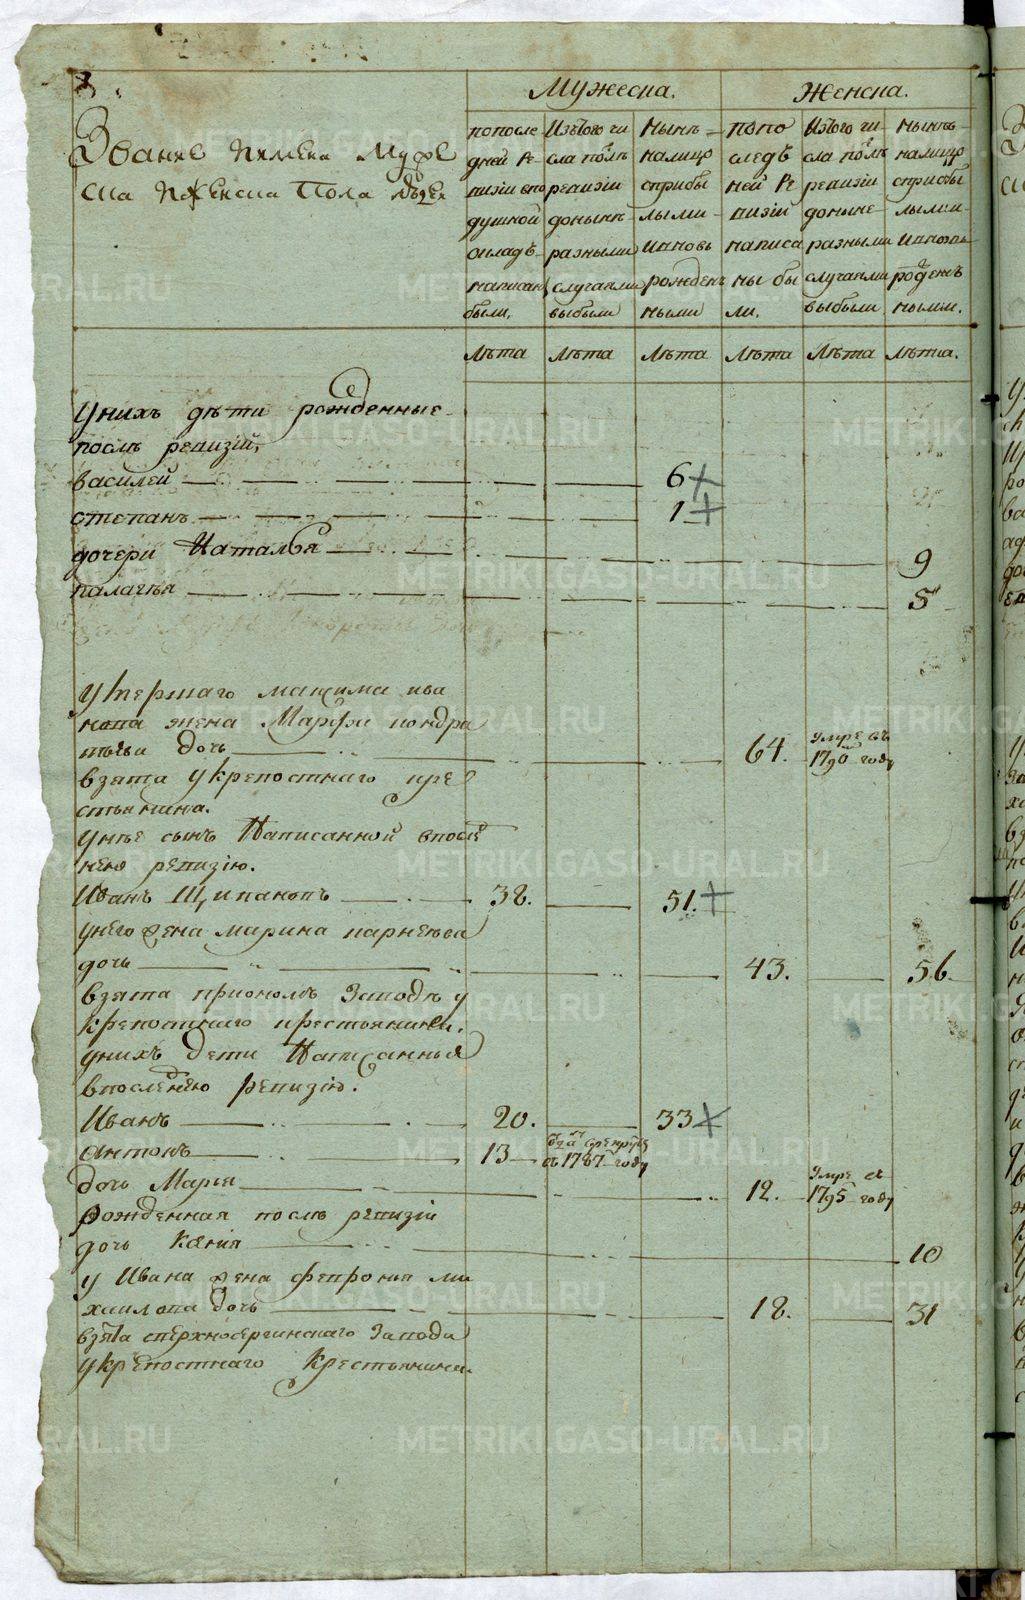 Мужеска.
Женска.
Звание и имена муже
ска и женска пола душъ
попосле
дней ре
визии въпо
душной
окладъ
написан
были,
Изътого чи
сла посль
ревизии
донынѣ
разными
случаями
выбыли
нынѣ
налицо
сприбы
лыми
ивновь
рожден
ными
попо
следъ
ней ре
визии
написа
ны бы
ли.
Изътого чи
сла посль
ревизии
донынѣ
разными
случаями
выбыли
нынѣ
налицо
сприбы
лыми
ивновь
рожденъ
ными.
лѣта лѣта лѣта лѣта лѣта лѣта.
унихъ дѣти рожденные
послѣ ревизіи,
василей 6
степанъ 1
дочери Наталья 9
палагѣя 5
умершаго максима ива
нова жена Марфа кондра
тьева дочь 64. умре въ 1790 году
взята укрепостнаго кре
стьянина.
унѣе сынъ Написанной впослѣ
нею ревизію.
Иванъ Щипановъ 38. 51.
унего жена марина карнеева
дочь 43. 56.
взята приономъ Заводѣ у
крепостнаго крестьянина.
унихъ дети Написанныя
впоследнею ревизію.
Иванъ 20. 33
антонъ 13 въ 1787 году
дочь Марья 12. умре въ 1795 году
рожденная послѣ ревизіи
дочь Ксенія 10
у Ивана жена февронья ми
хаилова дочь 18. 31
взята сверхносергинскаго Завода
укрепостнаго крестьянина.
METRIKI.GASO-URAL.RU